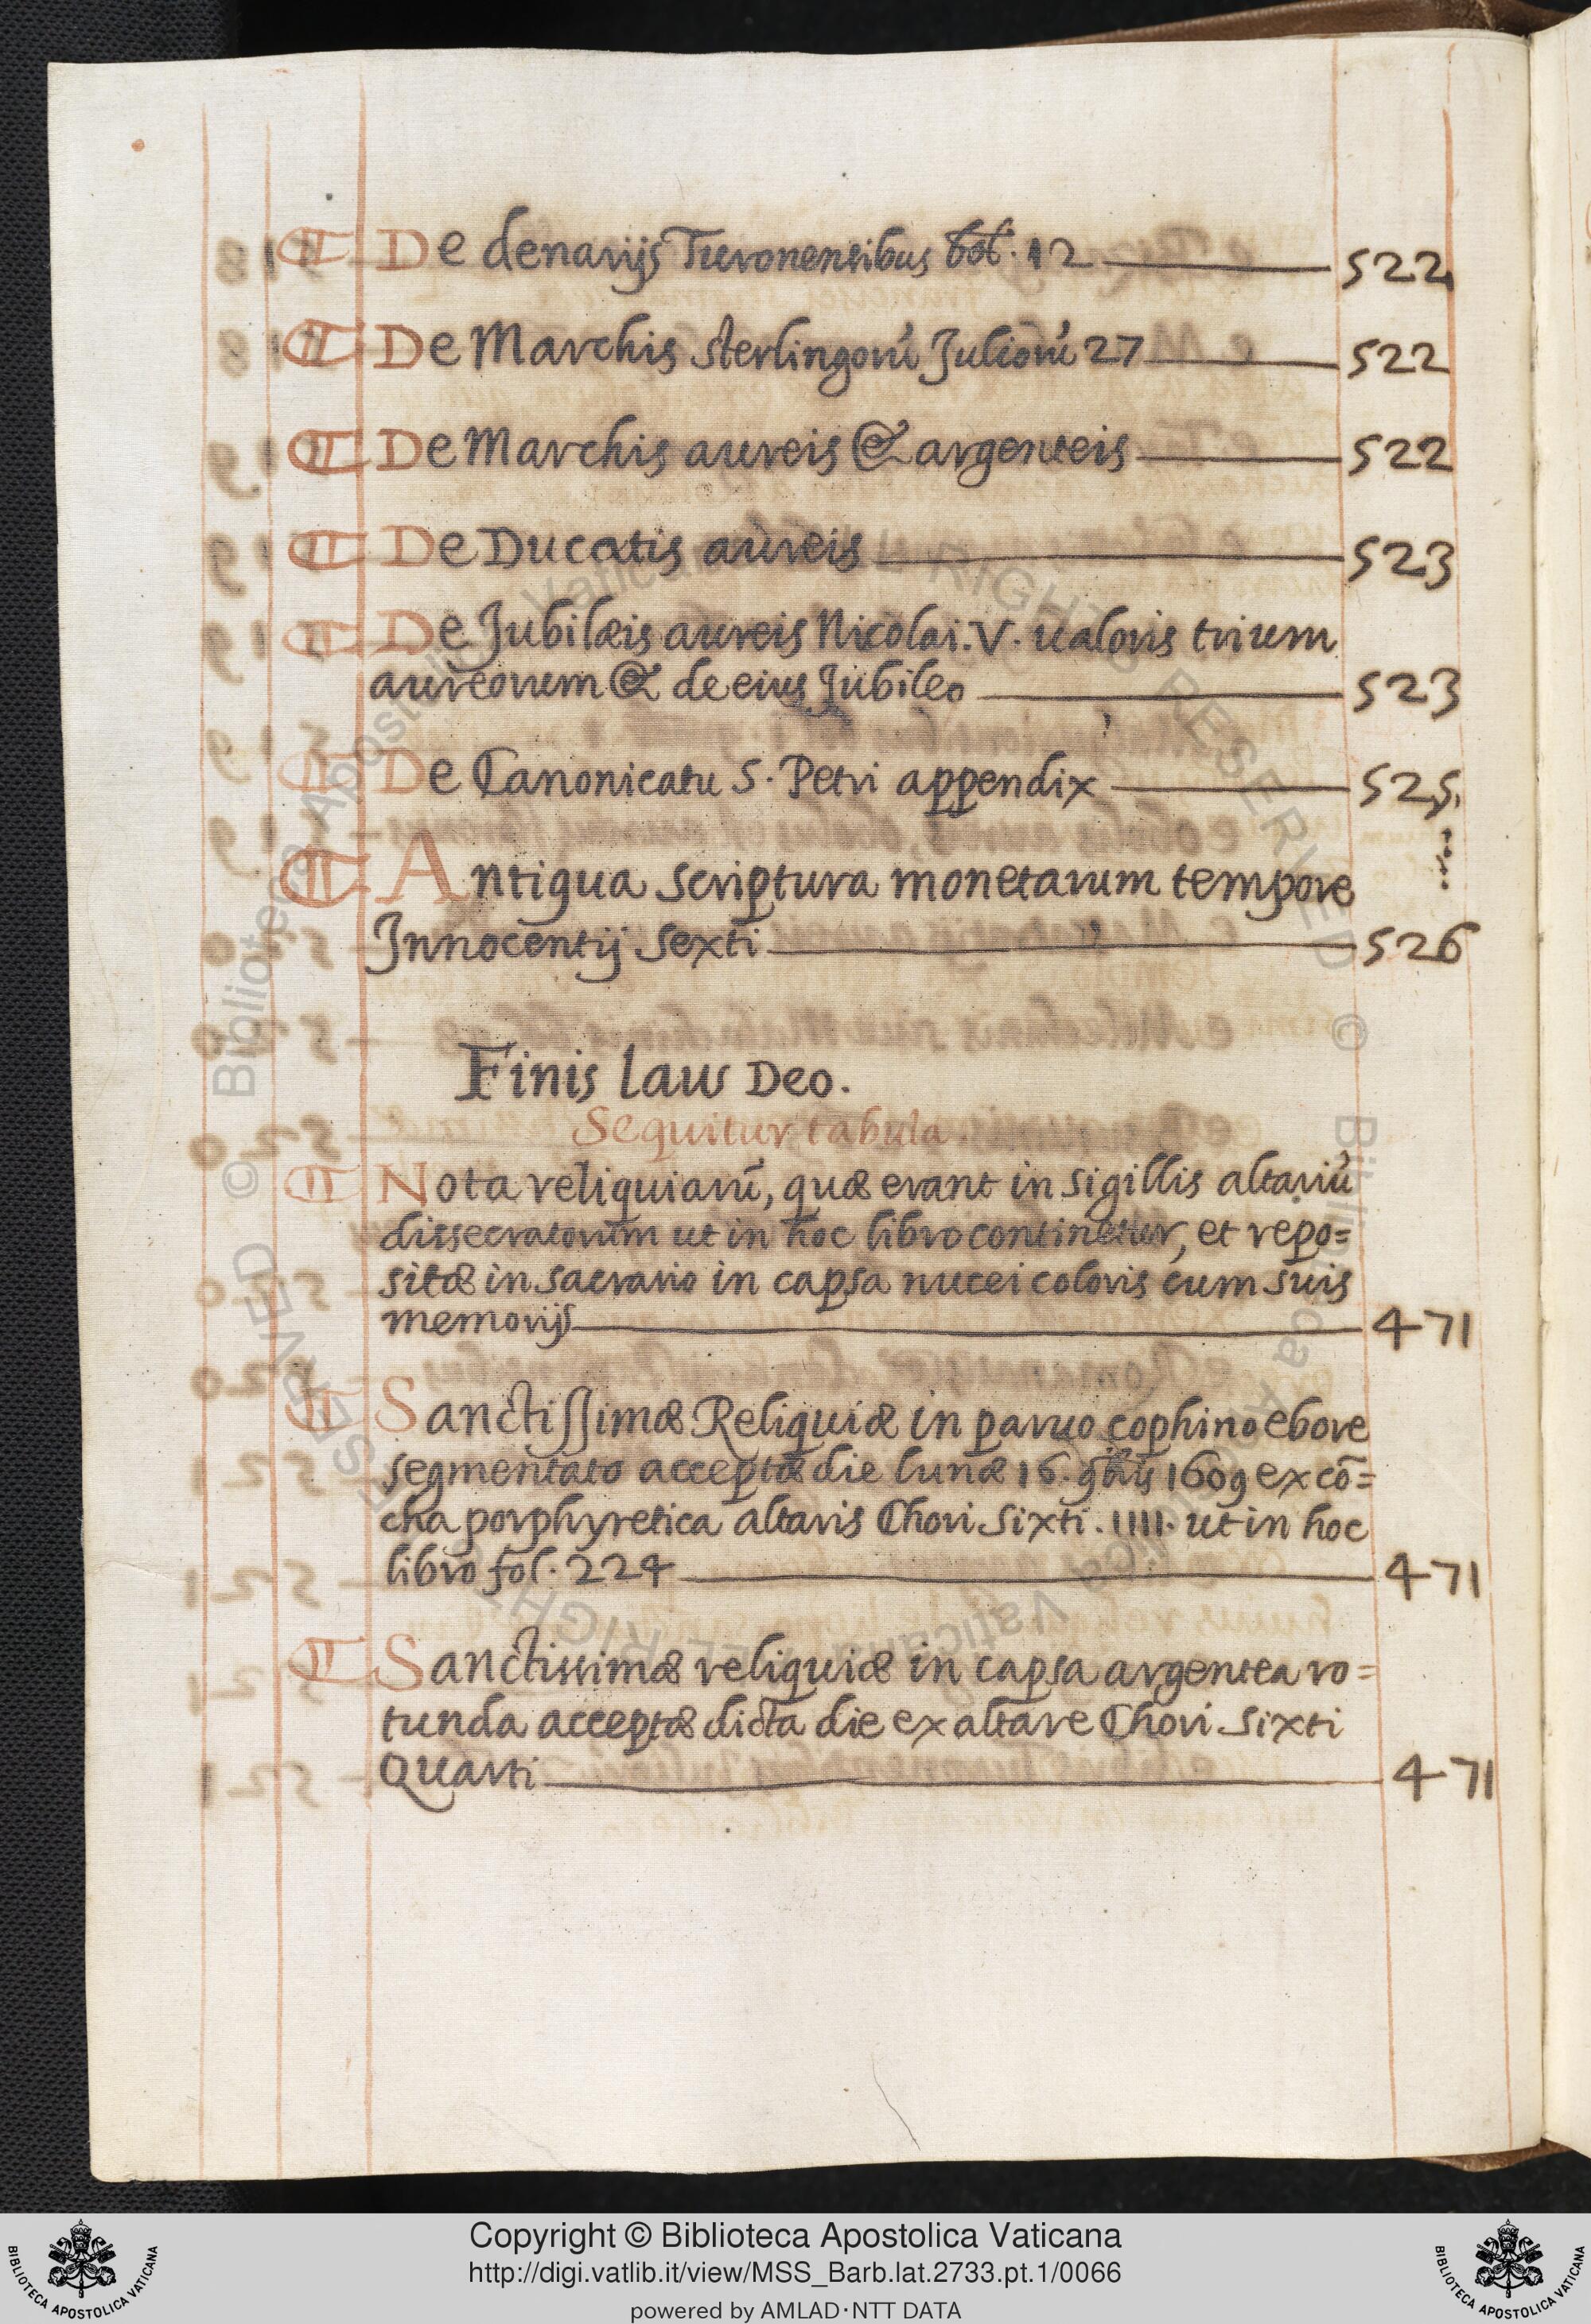 De denarijs Turonensibus bol. 12 522
De Marchis sterlingorũ Juliorũ 27 522
De Marchis aureis & argenteis 522
De Ducatis aureis 523
De Jubilæis aureis Nicolai. V. ualoris trium
aureorum & de eius Jubileo 523
De Canonicatu S. Petri appendix 525
Antiqua scriptura monetarum tempore
Innocentij sexti 526
Finis laus Deo.
Sequitur tabula.
Nota reliquiarũ, quæ erant in sigillis altariũ
dissecratorum ut in hoc libro continetur, et repo=
sitæ in sacrario in capsa nucei coloris cum suis
memorijs 471
Sanctissimæ Reliquiæ in paruo cophino ebore
segmentato acceptæ die lunæ 16. 9bris 1609 ex cõ=
cha porphyretica altaris Chori Sixti .IIII. ut in hoc
libro fol. 224 471
Sanctissimæ reliquiæ in capsa argentea ro=
tunda acceptæ dicta die ex altare Chori Sixti
Quarti 471
Copyright © Biblioteca Apostolica Vaticana
http://digi.vatlib.it/view/MSS_Barb.lat.2733.pt.1/0066
powered by AMLAD·NTT DATA
BIBLIOTECA APOSTOLICA VATICANA
BIBLIOTECA APOSTOLICA VATICANA